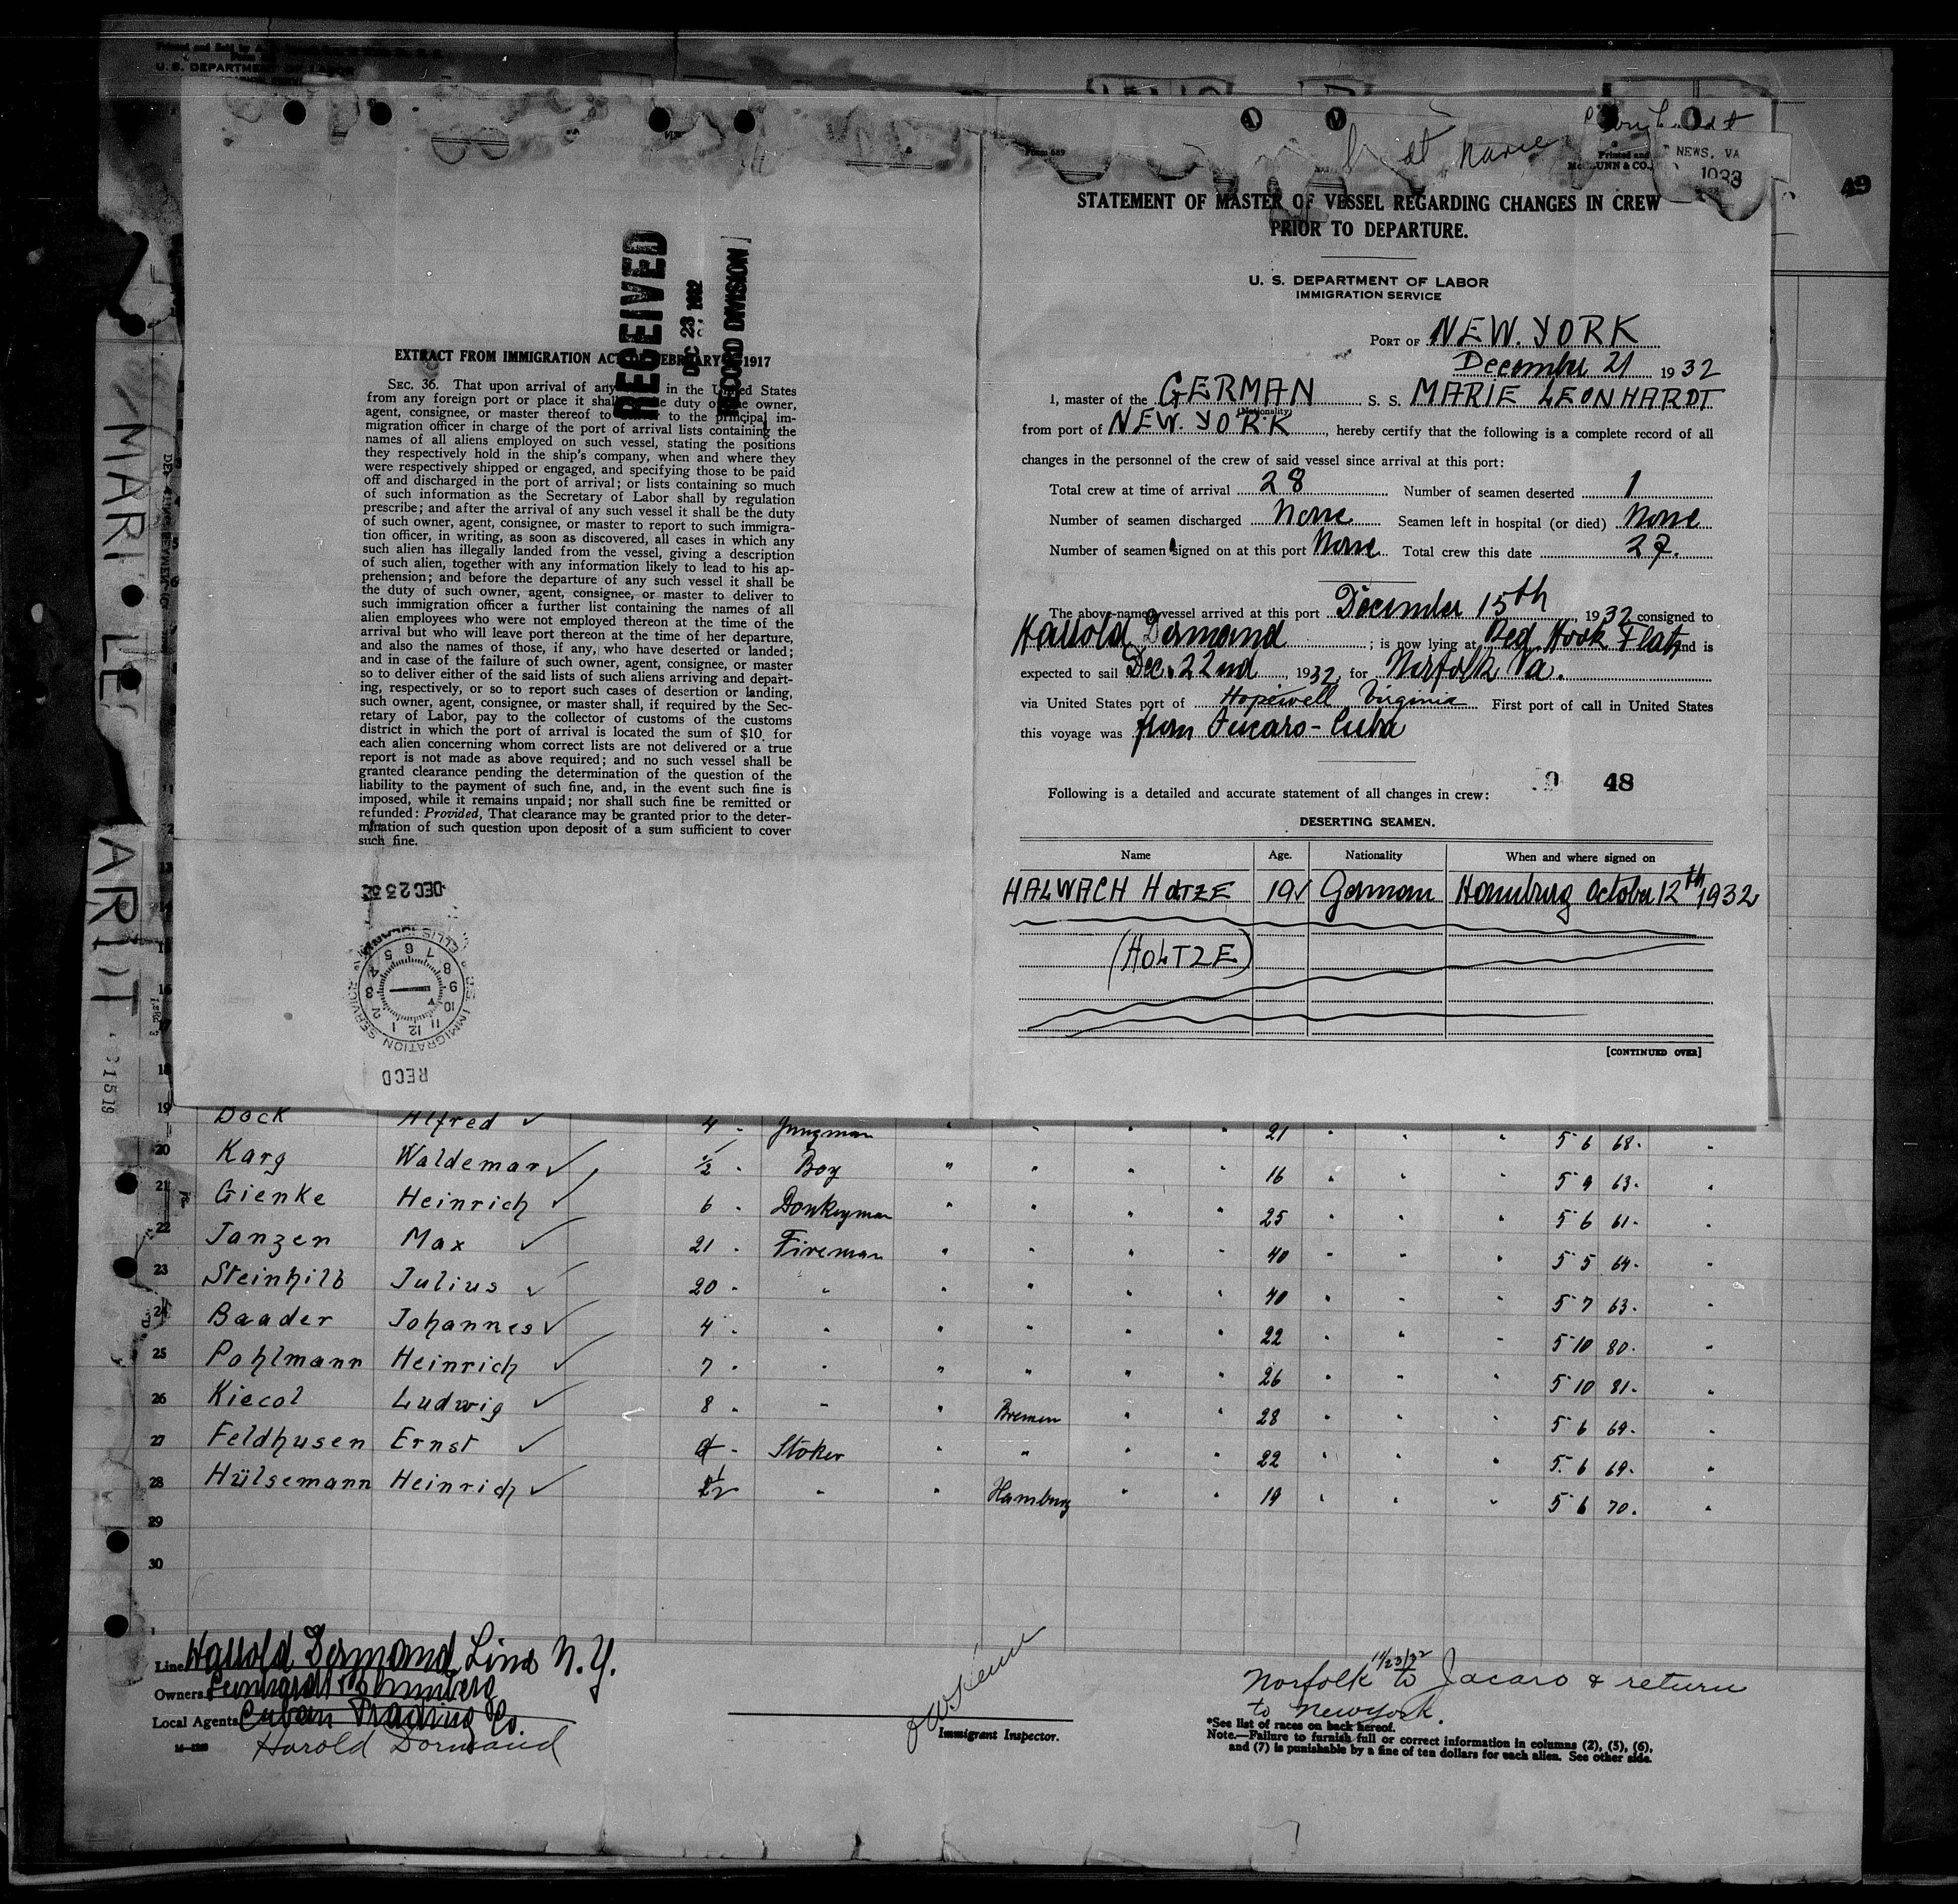 U. S. DEPARTMENT OF LABOR
at name
Form 689
Printed and
NEWS, VA
49
STATEMENT OF MASTER OF VESSEL REGARDING CHANGES IN CREW
PRIOR TO DEPARTURE.
U. S. DEPARTMENT OF LABOR
IMMIGRATION SERVICE
PORT OF NEW. YORK
December 21 1932
I, master of the GERMAN S. S. MARIE LEONHARDT
(Nationality)
from port of NEW. YORK, hereby certify that the following is a complete record of all
changes in the personnel of the crew of said vessel since arrival at this port:
Total crew at time of arrival 28 Number of seamen deserted 1
Number of seamen discharged None Seamen left in hospital (or died) None
Number of seamen signed on at this port None Total crew this date 27.
The above-named vessel arrived at this port December 15th, 1932 consigned to
Harrold Dormand; is now lying at Red Hook Flats and is
expected to sail Dec. 22nd, 1932, for Norfolk Va.
via United States port of Hopewell Virginia First port of call in United States
this voyage was from Jucaro-Cuba
48
Following is a detailed and accurate statement of all changes in crew:
DESERTING SEAMEN.
Name Age. Nationality When and where signed on
HALWACH HOTZE 19 German Hamburg october 12th 1932
(HOLTZE)
[CONTINUED OVER]
RECEIVED
DEC 23 1932
RECORD DIVISION
EXTRACT FROM IMMIGRATION ACT OF FEBRUARY 1917
SEC. 36. That upon arrival of any in the United States
from any foreign port or place it shall be the duty of the owner,
agent, consignee, or master thereof to to the principal im-
migration officer in charge of the port of arrival lists containing the
names of all aliens employed on such vessel, stating the positions
they respectively hold in the ship's company, when and where they
were respectively shipped or engaged, and specifying those to be paid
off and discharged in the port of arrival; or lists containing so much
of such information as the Secretary of Labor shall by regulation
prescribe; and after the arrival of any such vessel it shall be the duty
of such owner, agent, consignee, or master to report to such immigra-
tion officer, in writing, as soon as discovered, all cases in which any
such alien has illegally landed from the vessel, giving a description
of such alien, together with any information likely to lead to his ap-
prehension; and before the departure of any such vessel it shall be
the duty of such owner, agent, consignee, or master to deliver to
such immigration officer a further list containing the names of all
alien employees who were not employed thereon at the time of the
arrival but who will leave port thereon at the time of her departure,
and also the names of those, if any, who have deserted or landed;
and in case of the failure of such owner, agent, consignee, or master
so to deliver either of the said lists of such aliens arriving and depart-
ing, respectively, or so to report such cases of desertion or landing,
such owner, agent, consignee, or master shall, if required by the Sec-
retary of Labor, pay to the collector of customs of the customs
district in which the port of arrival is located the sum of $10 for
each alien concerning whom correct lists are not delivered or a true
report is not made as above required; and no such vessel shall be
granted clearance pending the determination of the question of the
liability to the payment of such fine, and, in the event such fine is
imposed, while it remains unpaid; nor shall such fine be remitted or
refunded: Provided, That clearance may be granted prior to the deter-
mination of such question upon deposit of a sum sufficient to cover
such fine.
DEC 23 32
U.S. IMMIGRATION SERVICE
RECD
19 Dock Alfred ✓ 4 " Jungman " " " " 21 " " " 5 6 68 "
20 Karg Waldemar ✓ 1/2 " Boy " " " " 16 " " " 5 9 63 "
21 Gienke Heinrich ✓ 6 " Donkeyman " " " " 25 " " " 5 6 61 "
22 Janzen Max ✓ 21 " Fireman " " " " 40 " " " 5 5 64 "
23 Steinhilb Julius ✓ 20 " " " " " " 40 " " " 5 7 63 "
24 Baader Johannes ✓ 4 " " " " " " 22 " " " 5 10 80 "
25 Pohlmann Heinrich ✓ 7 " " " " " " 26 " " " 5 10 81 "
26 Kiecol Ludwig ✓ 8 " " " Bremen " " 28 " " " 5 6 69 "
27 Feldhusen Ernst ✓ " Stoker " " " " 22 " " " 5 6 69 "
28 Hülsemann Heinrich ✓ " " Hamburg " " 19 " " " 5 6 70 "
29
30
Line Harrold Dormand Line N.Y.
Owners
Local Agents Cuban Trading Co.
Harold Dormand
Immigrant Inspector.
11/23/32
Norfolk to Jacaro & return
to New York.
*See list of races on back hereof.
Note.—Failure to furnish full or correct information in columns (2), (5), (6),
and (7) is punishable by a fine of ten dollars for each alien. See other side.